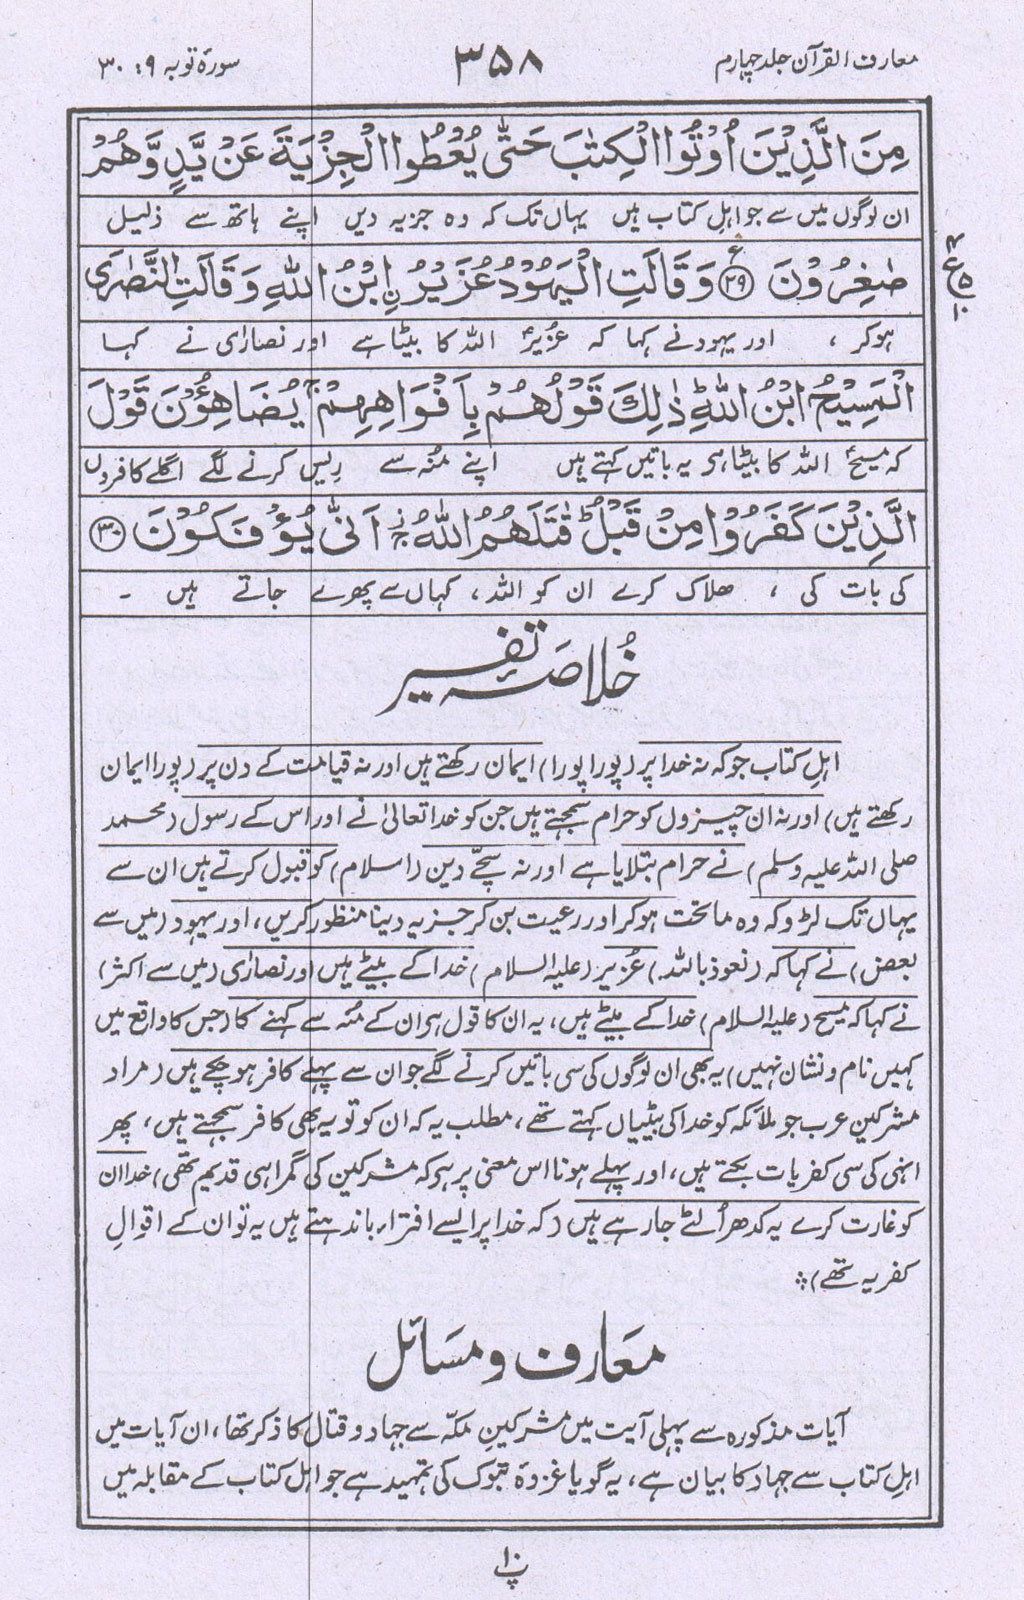 معارف القرآن جلد چہارم
۳۵۸
سورۂ توبہ ۹: ۳۰
مِنَ الَّذِیْنَ اُوْتُوا الْکِتٰبَ حَتّٰی یُعْطُوا الْجِزْیَةَ عَنْ یَّدٍ وَّ هُمْ
ان لوگوں میں سے جو اہل کتاب ہیں یہاں تک کہ وہ جزیہ دیں اپنے ہاتھ سے ذلیل
صٰغِرُوْنَ ﴿۲۹﴾ وَ قَالَتِ الْیَهُوْدُ عُزَیْرُ ۨابْنُ اللّٰهِ وَ قَالَتِ النَّصٰرَی
ہو کر ، اور یہود نے کہا کہ عُزیرؑ اللہ کا بیٹا ہے اور نصارٰی نے کہا
الْمَسِیْحُ ابْنُ اللّٰهِ ؕ ذٰلِکَ قَوْلُهُمْ بِاَفْوَاهِهِمْ ۚ یُضَاهِـُٔوْنَ قَوْلَ
کہ مسیحؑ اللہ کا بیٹا ہی یہ باتیں کہتے ہیں اپنے مُنہ سے رِیس کرنے لگے اگلے کافروں
الَّذِیْنَ کَفَرُوْا مِنْ قَبْلُ ؕ قٰتَلَهُمُ اللّٰهُ ۫ۚ اَنّٰی یُؤْفَکُوْنَ ﴿۳۰﴾
کی بات کی ، ہلاک کرے ان کو اللہ، کہاں سے پھرے جاتے ہیں ۔
خُلاصۂ تفسیر
اہلِ کتاب جو کہ نہ خدا پر (پورا پورا) ایمان رکھتے ہیں اور نہ قیامت کے دن پر (پورا ایمان
رکھتے ہیں) اور نہ ان چیزوں کو حرام سمجھتے ہیں جن کو خدا تعالیٰ نے اور اس کے رسول (محمد
صلی اللہ علیہ وسلم) نے حرام بتلایا ہے اور نہ سچے دین (اسلام) کو قبول کرتے ہیں ان سے
یہاں تک لڑو کہ وہ ماتحت ہو کر اور رعیت بن کر جزیہ دینا منظور کریں، اور یہود (میں سے
بعض) نے کہا کہ (نعوذ باللہ) عُزیر (علیہ السلام) خدا کے بیٹے ہیں اور نصارٰی (میں سے اکثر)
نے کہا کہ مسیح (علیہ السلام) خدا کے بیٹے ہیں، یہ ان کا قول ہی ان کے مُنہ سے کہنے کا (جس کا واقع میں
کہیں نام و نشان نہیں) یہ بھی ان لوگوں کی سی باتیں کرنے لگے جو ان سے پہلے کافر ہو چکے ہیں (مراد
مشرکینِ عرب جو ملائکہ کو خدا کی بیٹیاں کہتے تھے، مطلب یہ کہ ان کو تو یہ بھی کافر سمجھتے ہیں، پھر
انہی کی سی کفریات بکتے ہیں، اور پہلے ہونا اس معنی پر ہی کہ مشرکین کی گمراہی قدیم تھی) خدا ان
کو غارت کرے یہ کدھر اُلٹے جا رہے ہیں (کہ خدا پر ایسے افتراء باندھتے ہیں یہ تو ان کے اقوالِ
کفریہ تھے)
معارف و مسائل
آیات مذکورہ سے پہلی آیت میں مشرکینِ مکہ سے جہاد و قتال کا ذکر تھا، ان آیات میں
اہلِ کتاب سے جہاد کا بیان ہے، یہ گویا غزوۂ تبوک کی تمہید ہے جو اہل کتاب کے مقابلہ میں